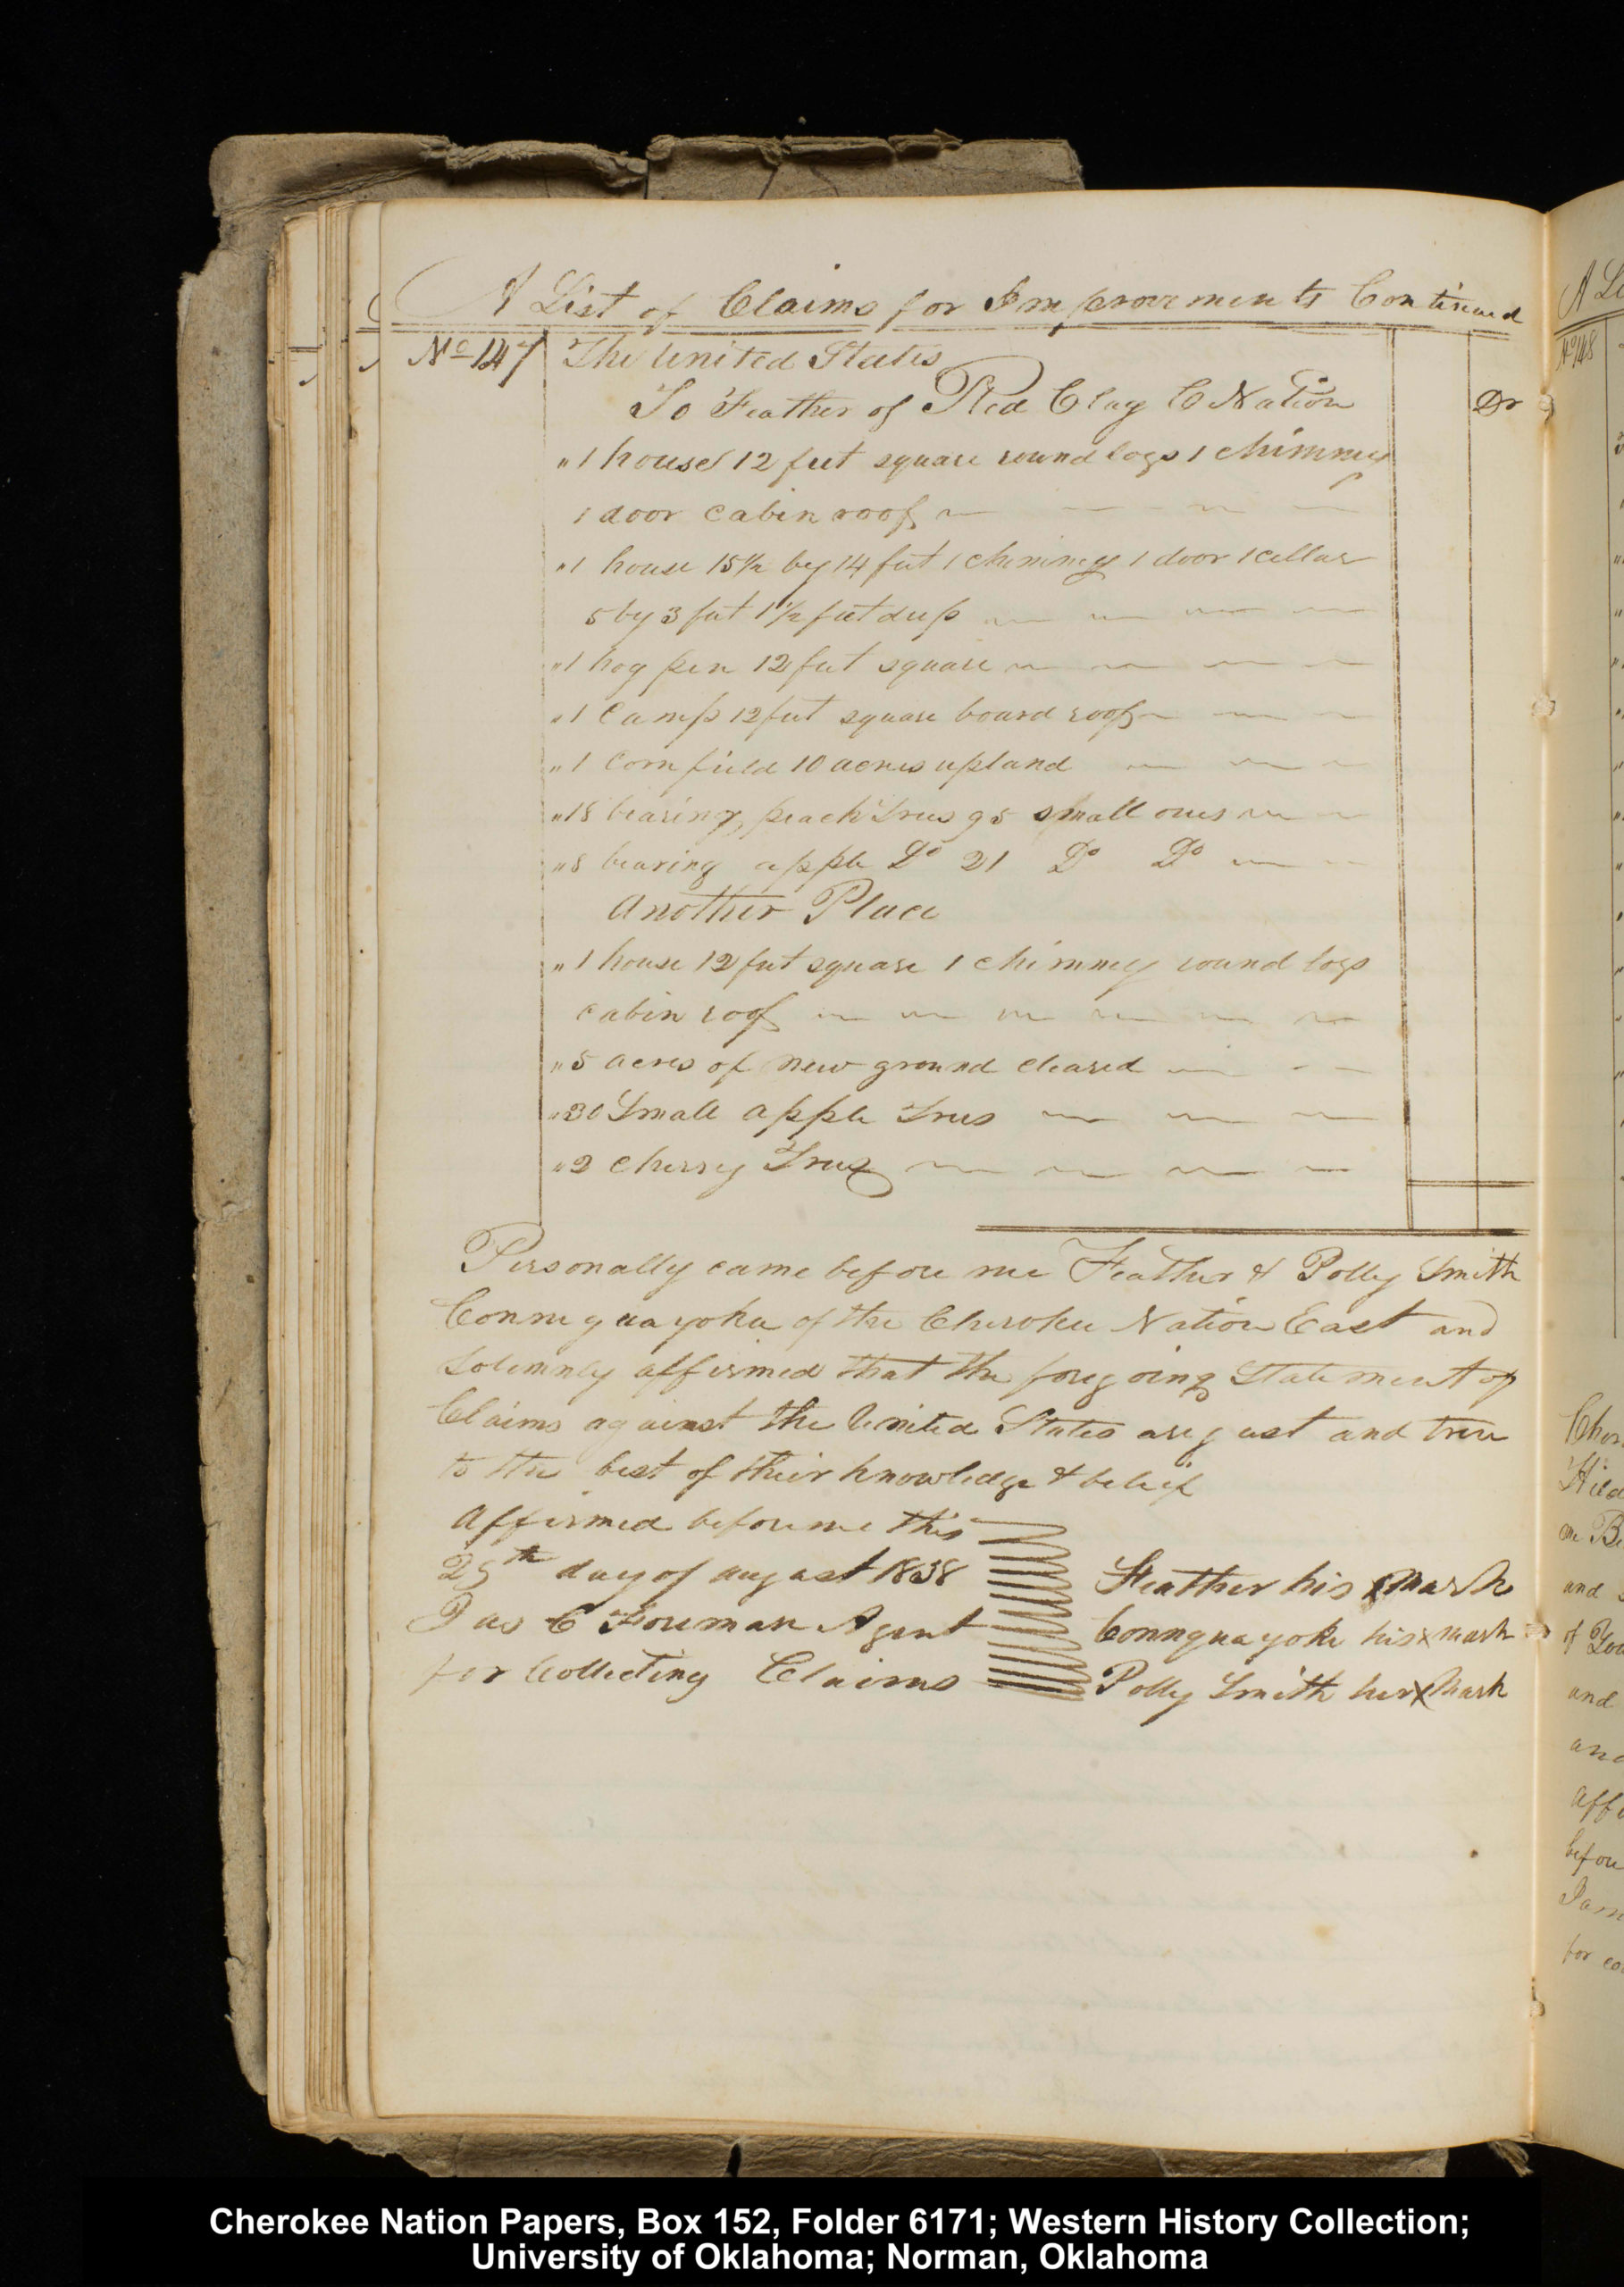 A List of Claims for Improvements Continued
No 147 The United States
To Feather of Red Clay C Nation Dr
"1 house 12 feet square round logs 1 chimney
1 door cabin roof
"1 house 15½ by 14 feet 1 chimney 1 door 1 cellar
5 by 3 feet 1½ feet deep
"1 hog pen 12 feet square
"1 Camp 12 feet square board roof
"1 Corn field 10 acres upland
"18 bearing peach Trees 95 small ones
"8 bearing apple Do 21 Do Do
Another Place
"1 house 12 feet square 1 chimney round logs
cabin roof
"5 acres of new ground cleared
"30 Small apple Trees
"2 cherry Trees
Personally came before me Feather & Polly Smith
Connequayoka of the Cherokee Nation East and
Solemnly affirmed that the foregoing Statement of
Claims against the United States are just and true
to the best of their knowledge & belief
Affirmed before me this
25th day of august 1838
Jas C Foreman Agent
for Collecting Claims
Feather his x mark
Connquayoke his x mark
Polly Smith her x mark
A Li
No 148
Cher
Hild
me Be
and
of
and
and
Affi
before
Jam
for co
Cherokee Nation Papers, Box 152, Folder 6171; Western History Collection;
University of Oklahoma; Norman, Oklahoma